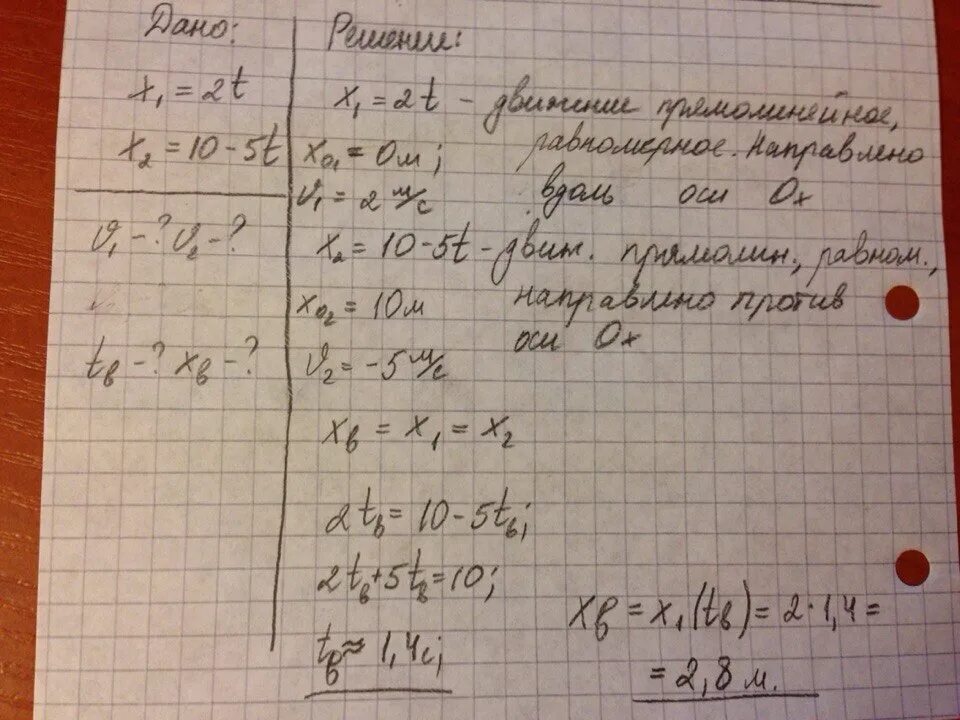 Дано:
x₁ = 2t
x₂ = 10 - 5t
υ₁ - ? υ₂ - ?
tв - ? xв - ?
Решение:
x₁ = 2t - движение прямолинейное,
равномерное. Направлено
вдоль оси Ox
x₀₁ = 0м;
υ₁ = 2 м/с
x₂ = 10 - 5t - движ. прямолин., равном.,
направлено против
оси Ox
x₀₂ = 10м
υ₂ = -5 м/с
xв = x₁ = x₂
2tв = 10 - 5tв;
2tв + 5tв = 10;
tв ≈ 1,4с;
xв = x₁(tв) = 2 · 1,4 =
= 2,8 м.